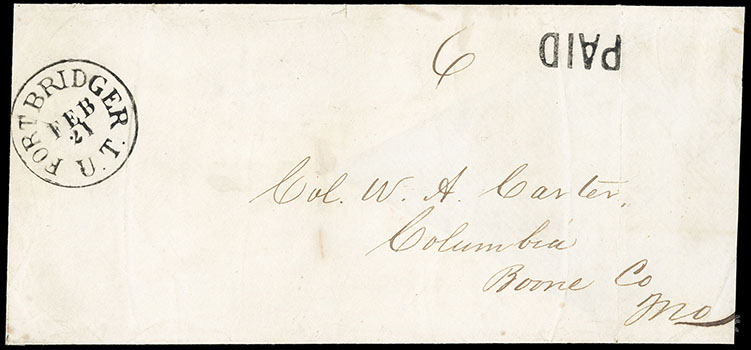 6
PAID
FORT BRIDGER
FEB
21
U.T.
Col. W. A. Carter,
Columbia
Boone Co
Mo